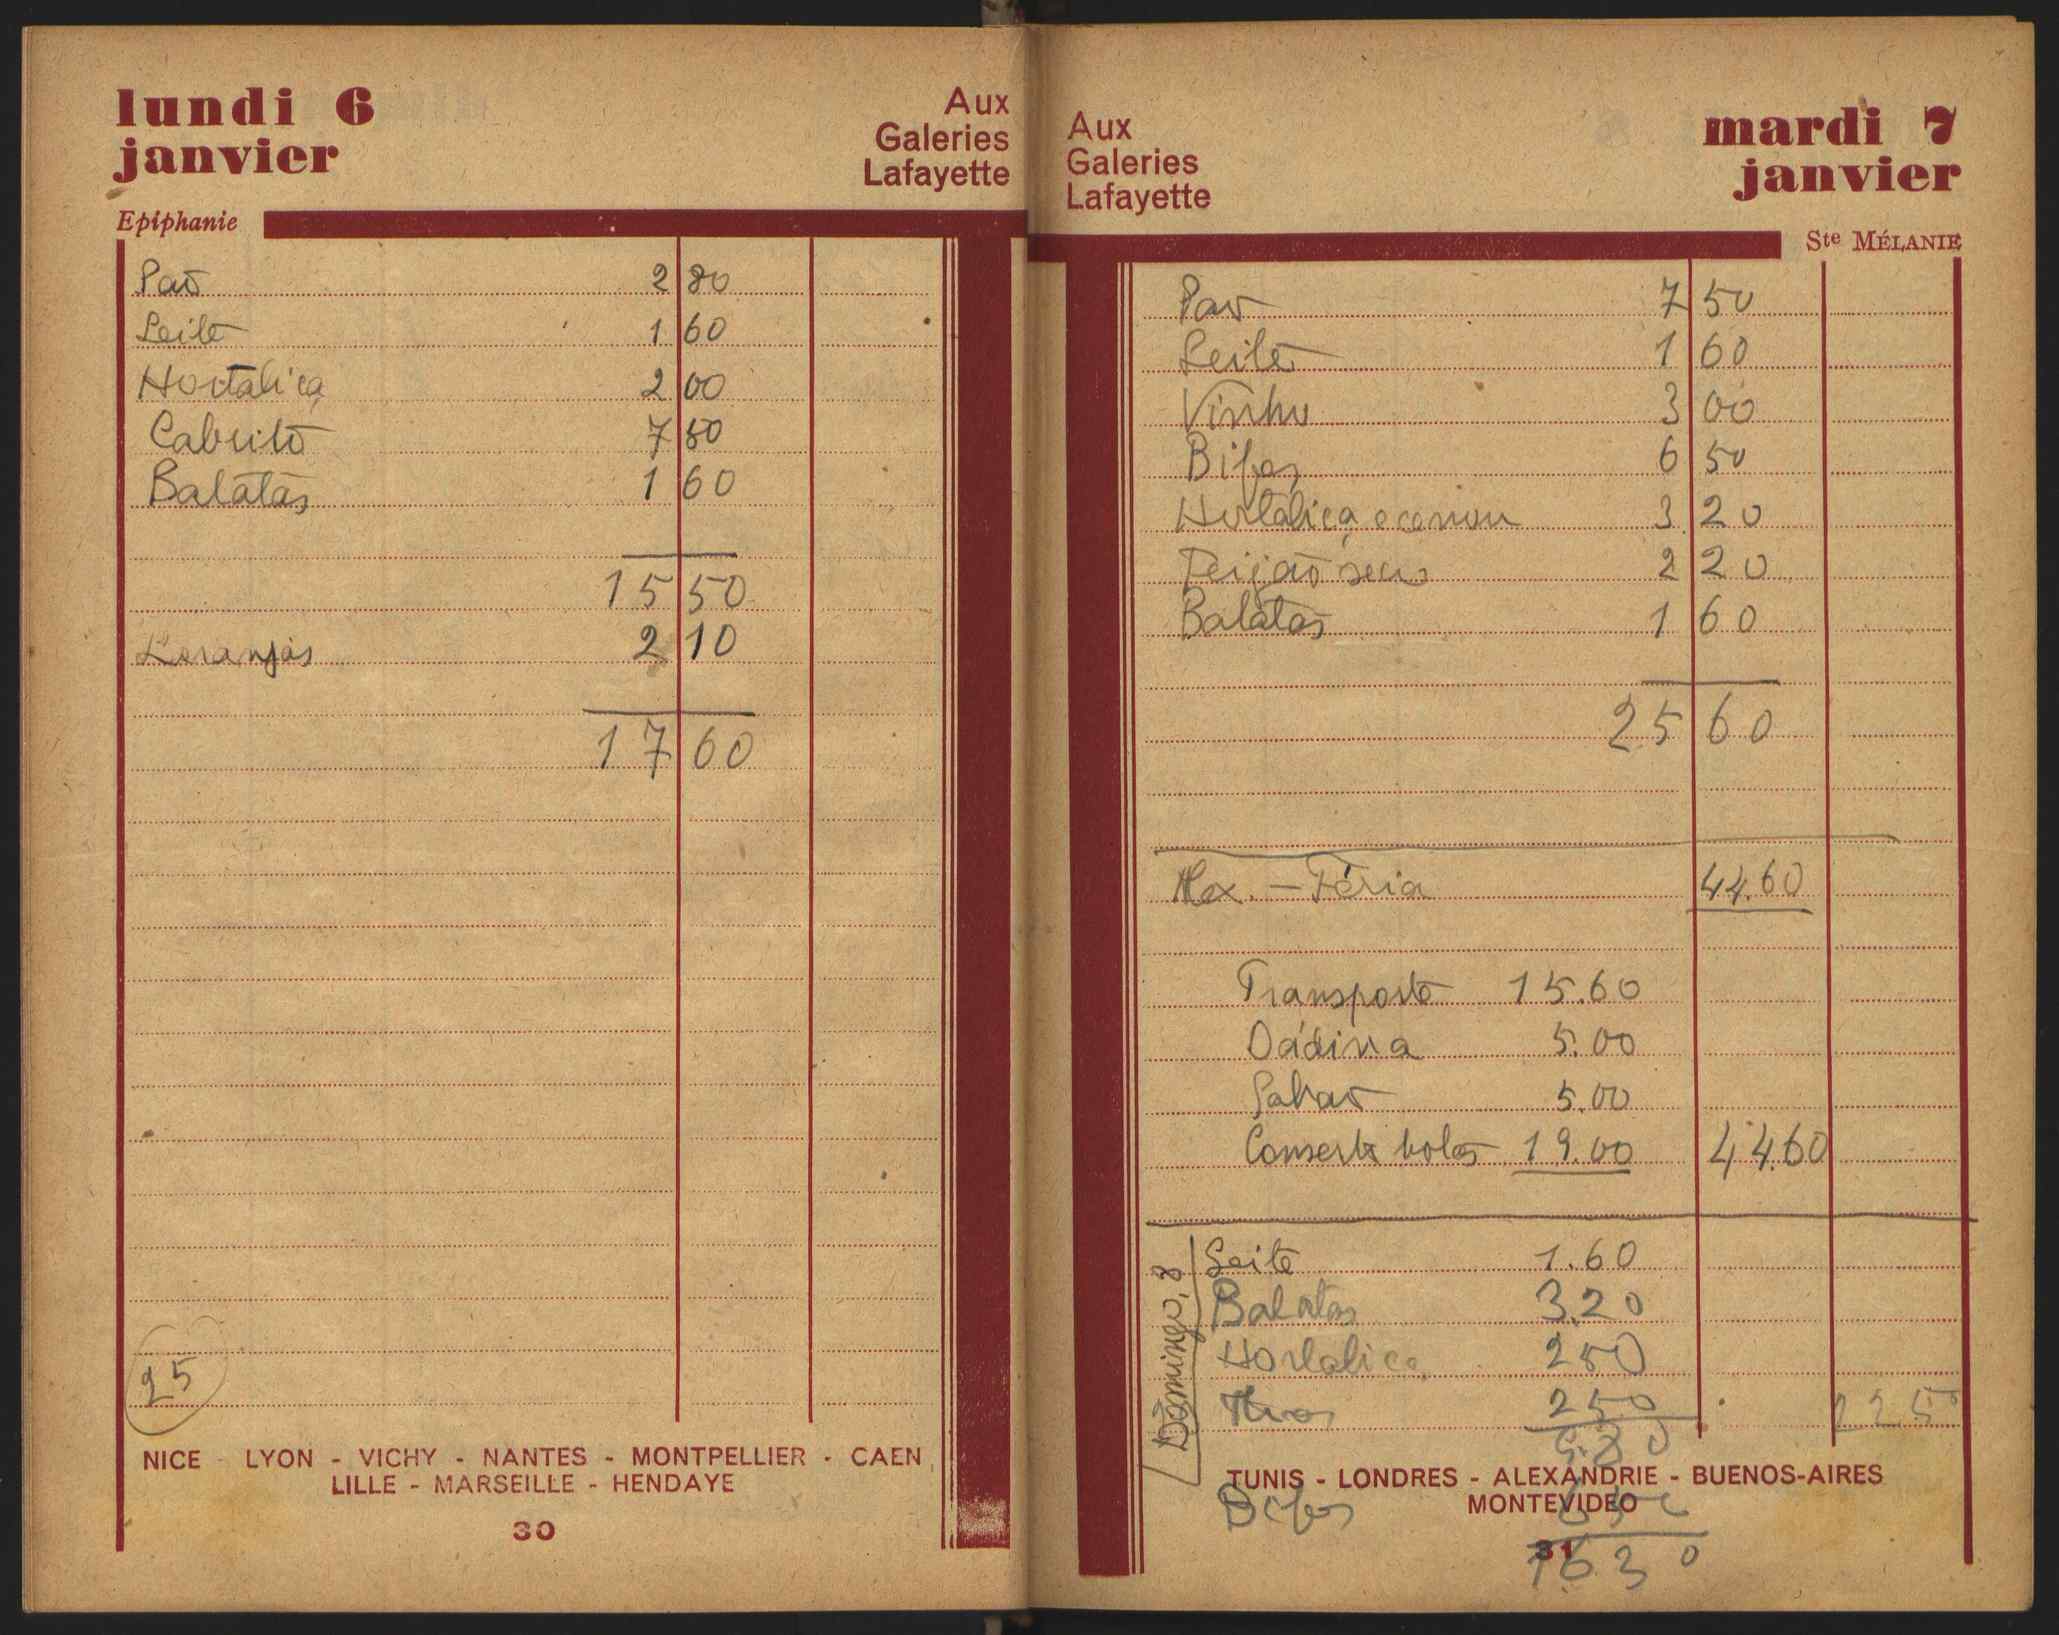 lundi 6
janvier
Aux
Galeries
Lafayette
Epiphanie
Pão 2 80
Leite 1 60
Hortaliça 2 00
Cabrito 7 50
Batatas 1 60
15 50
Laranjas 2 10
17 60
25
NICE - LYON - VICHY - NANTES - MONTPELLIER - CAEN
LILLE - MARSEILLE - HENDAYE
30
Aux
Galeries
Lafayette
mardi 7
janvier
Ste MÉLANIE
Pão 7 50
Leite 1 60
Vinho 3 00
Bifes 6 50
Hortaliça e cenoura 3 20
Feijão seco 2 20
Batatas 1 60
25 60
Alex. - Féria 44.60
Transporte 15.60
Dádiva 5.00
Sabão 5.00
Conserto botas 19.00 44.60
Domingo, 8
Leite 1.60
Batatas 3.20
Hortaliça 250
250 2250
9.80
TUNIS - LONDRES - ALEXANDRIE - BUENOS-AIRES
MONTEVIDEO
Bifes 650
31
1630